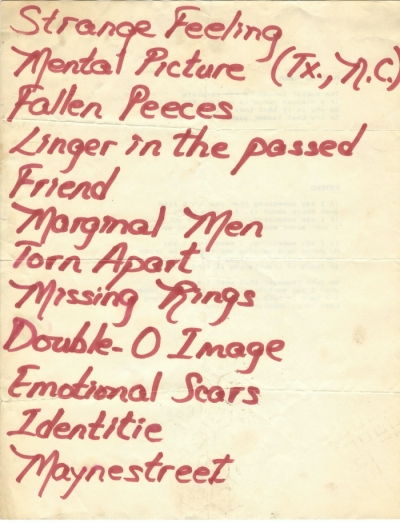 Strange Feeling
Mental Picture (Tx., N.C.)
Fallen Peeces
Linger in the passed
Friend
Marginal Men
Torn Apart
Missing Rings
Double-O Image
Emotional Scars
Identitie
Maynestreet